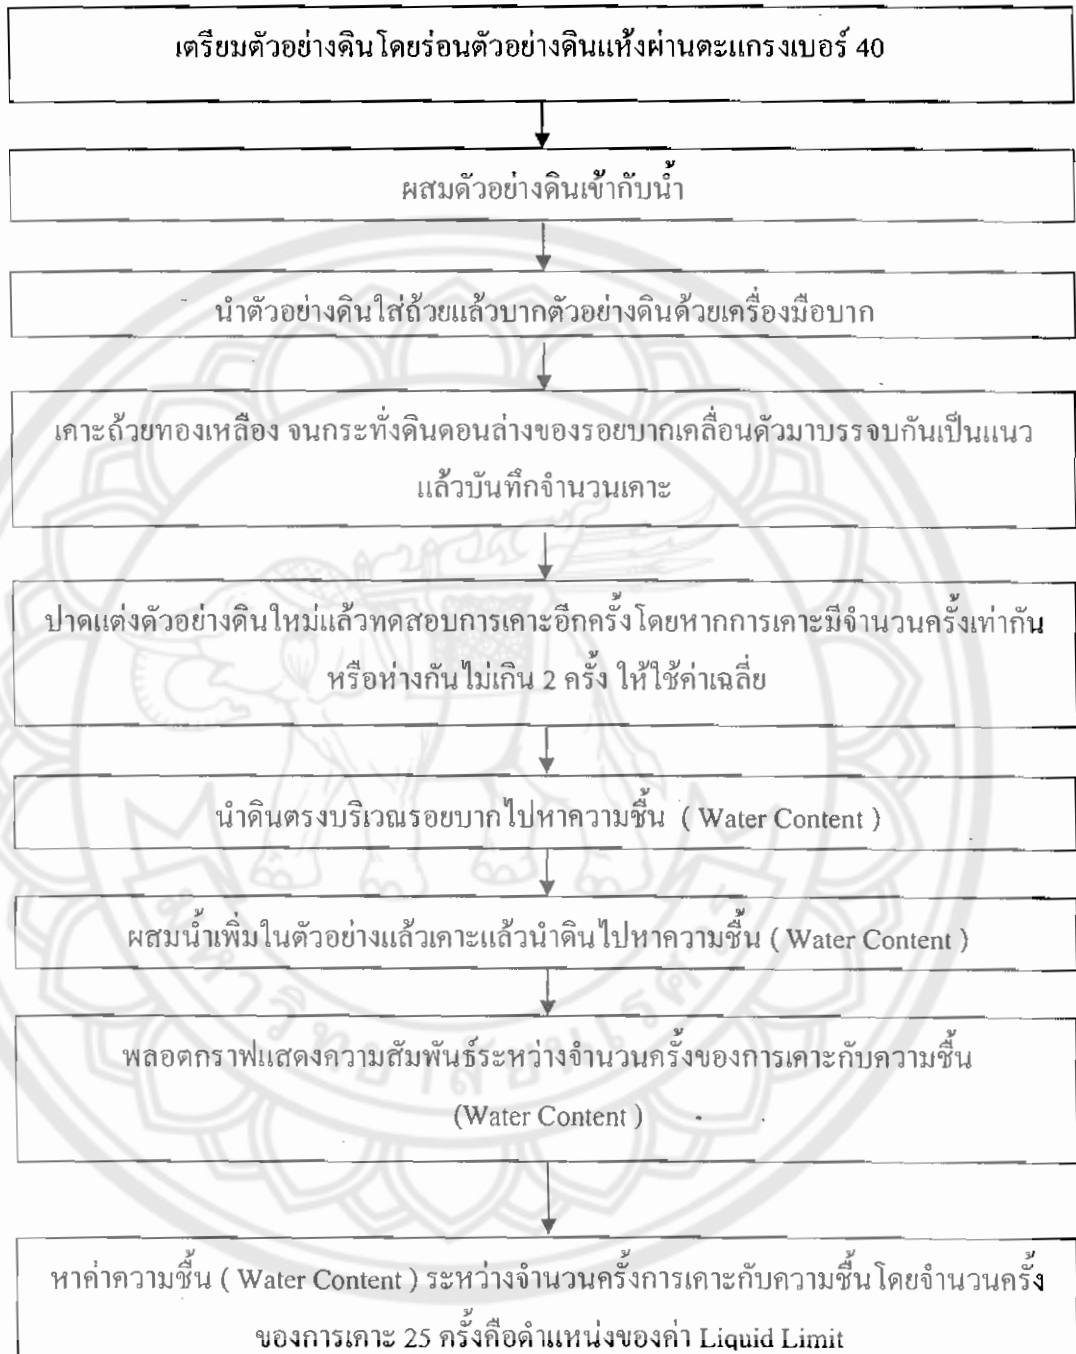 เตรียมตัวอย่างดินโดยร่อนตัวอย่างดินแห้งผ่านตะแกรงเบอร์ 40
ผสมตัวอย่างดินเข้ากับน้ำ
นำตัวอย่างดินใส่ถ้วยแล้วบากตัวอย่างดินด้วยเครื่องมือบาก
เคาะถ้วยทองเหลือง จนกระทั่งดินตอนล่างของรอยบากเคลื่อนตัวมาบรรจบกันเป็นแนว
แล้วบันทึกจำนวนเคาะ
ปาดแต่งตัวอย่างดินใหม่แล้วทดสอบการเคาะอีกครั้งโดยหากการเคาะมีจำนวนครั้งเท่ากัน
หรือห่างกันไม่เกิน 2 ครั้ง ให้ใช้ค่าเฉลี่ย
นำดินตรงบริเวณรอยบากไปหาความชื้น ( Water Content )
ผสมน้ำเพิ่มในตัวอย่างแล้วเคาะแล้วนำดินไปหาความชื้น ( Water Content )
พลอตกราฟแสดงความสัมพันธ์ระหว่างจำนวนครั้งของการเคาะกับความชื้น
(Water Content )
มหาวิทยาลัยนเรศวร
หาค่าความชื้น ( Water Content ) ระหว่างจำนวนครั้งการเคาะกับความชื้นโดยจำนวนครั้ง
ของการเคาะ 25 ครั้งคือตำแหน่งของค่า Liquid Limit